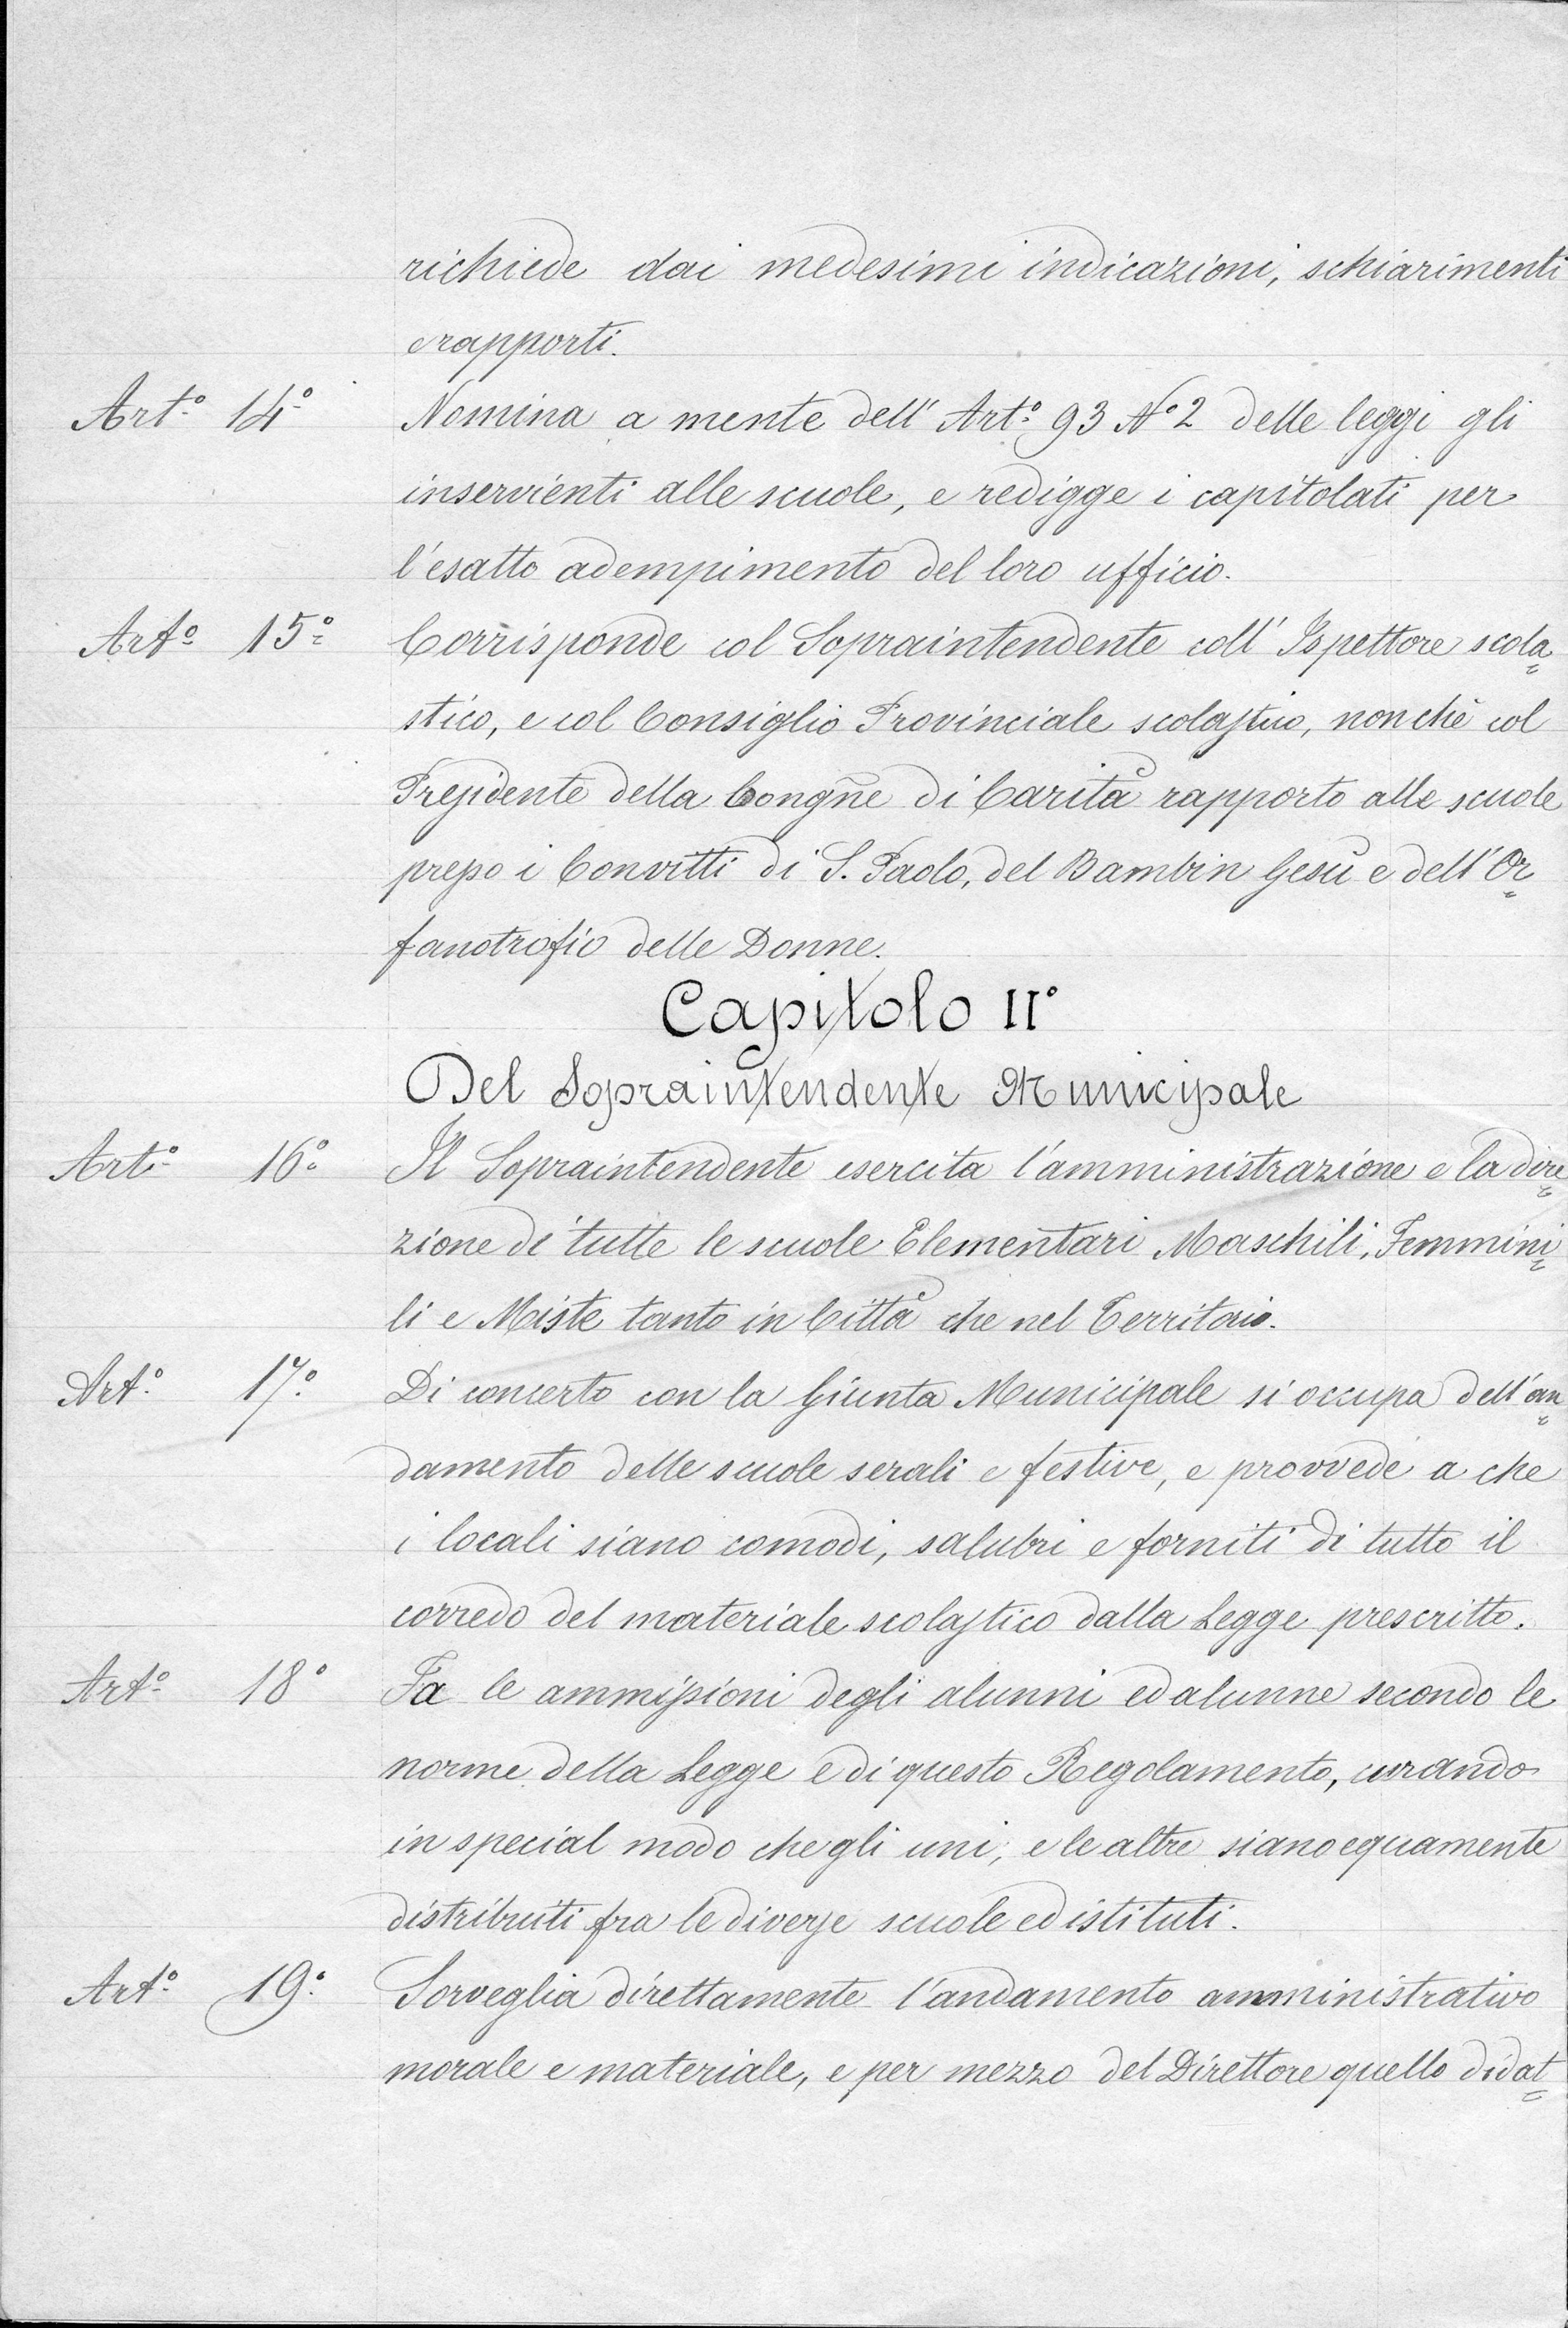 richiede dai medesimi indicazioni, schiarimenti
e rapporti.
Art.º 14º Nomina a mente dell' Art.º 93 Nº 2 delle leggi gli
inservienti alle scuole, e redigge i capitolati per
l'esatto adempimento del loro ufficio.
Art.º 15º Corrisponde col Sopraintendente coll' Ispettore scola=
stico, e col Consiglio Provinciale scolastico, nonchè col
Presidente della Congñe di Carità rapporto alle scuole
presso i Convitti di S. Paolo, del Bambin Gesù e dell' Or=
fanotrofio delle Donne.
Capitolo IIº
Del Sopraintendente Municipale
Art.º 16º Il Sopraintendente esercita l'amministrazione e la dire=
zione di tutte le scuole Elementari Maschili, Femmini=
li e Miste tanto in Città che nel Territoio.
Art.º 17º Di concerto con la Giunta Municipale si occupa dell'an=
damento delle scuole serali e festive, e provvede a che
i locali siano comodi, salubri e forniti di tutto il
corredo del materiale scolastico dalla Legge prescritto.
Art.º 18º Fa le ammissioni degli alunni ed alunne secondo le
norme della Legge e di questo Regolamento, curando
in special modo che gli uni, e le altre siano equamente
distribuiti fra le diverse scuole ed istituti.
Art.º 19º Sorveglia direttamente l'andamento amministrativo
morale e materiale, e per mezzo del Direttore quello didat=